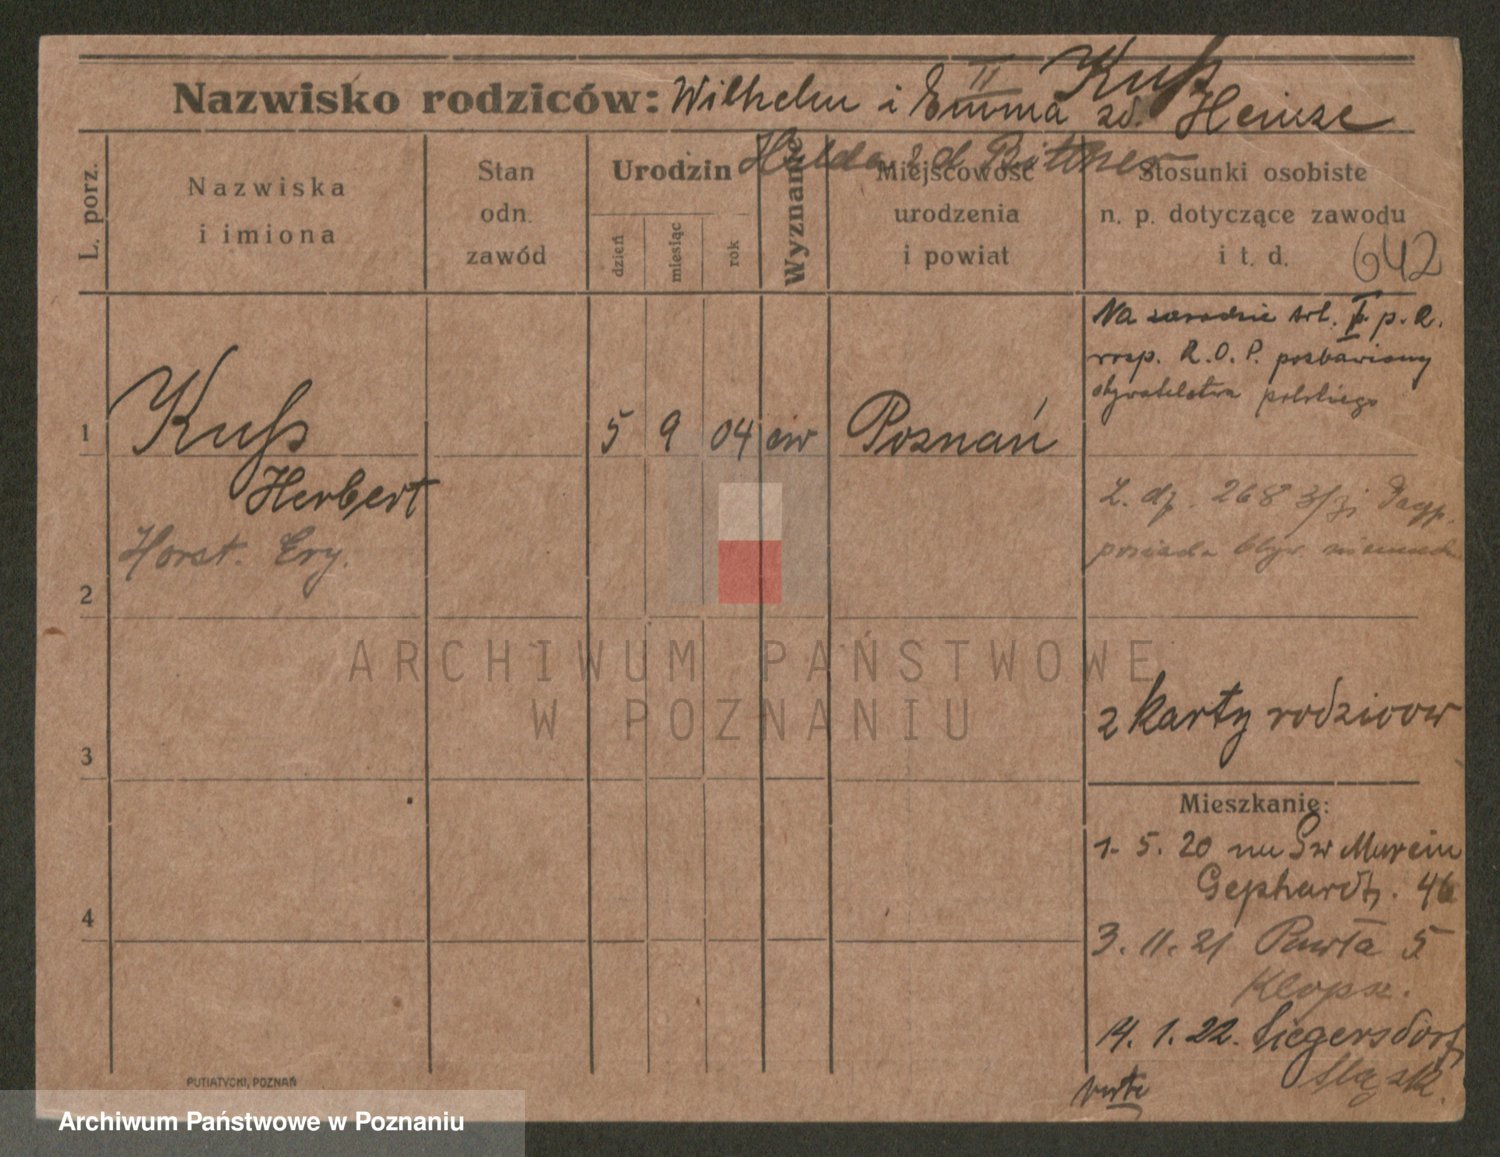 Kuß
Nazwisko rodziców: Wilhelm i Emma zd. Heinze
II Hilda z d. Bittner
L. porz.
Nazwiska
i imiona
Stan
odn.
zawód
Urodzin
dzień
miesiąc
rok
Wyznanie
Miejscowość
urodzenia
i powiat
Stosunki osobiste
n. p. dotyczące zawodu
i t. d.
642
Na zasadzie art. II p. R.
rozp. R. O. P. pozbawiony
obywatelstwa polskiego
1 Kuß 5 9 04 ew Poznań
Herbert
Horst. Ery.
L. dz. 268 3/
posiada Obyw.
2
2 karty rodzicow
3
Mieszkanie:
1. 5. 20 Sw Marcin
Gephardt. 46
4
3. 11. 21 Pawła 5
Klopsz.
14. 1. 22. Siegersdorf
Sląsk.
verte
PUTIATYCKI, POZNAŃ
ARCHIWUM PAŃSTWOWE
W POZNANIU
Archiwum Państwowe w Poznaniu